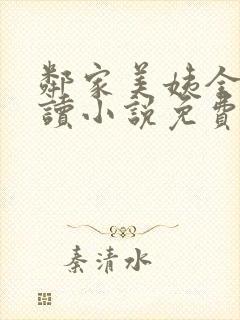 鄰家美姨全
讀小說免費
秦清水